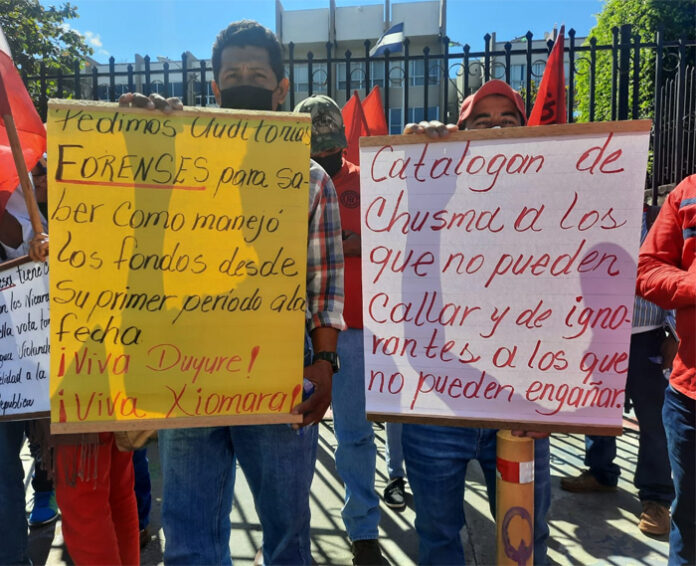 Pedimos Auditorias
FORENSES para sa-
ber como manejó
los fondos desde
su primer período a la
fecha
¡Viva Duyure!
¡Viva Xiomara!
Catalogan de
Chusma a los
que no pueden
Callar y de igno-
rantes a los que
no pueden engañar.
tiene
los Nicara
vota
a la
epublica